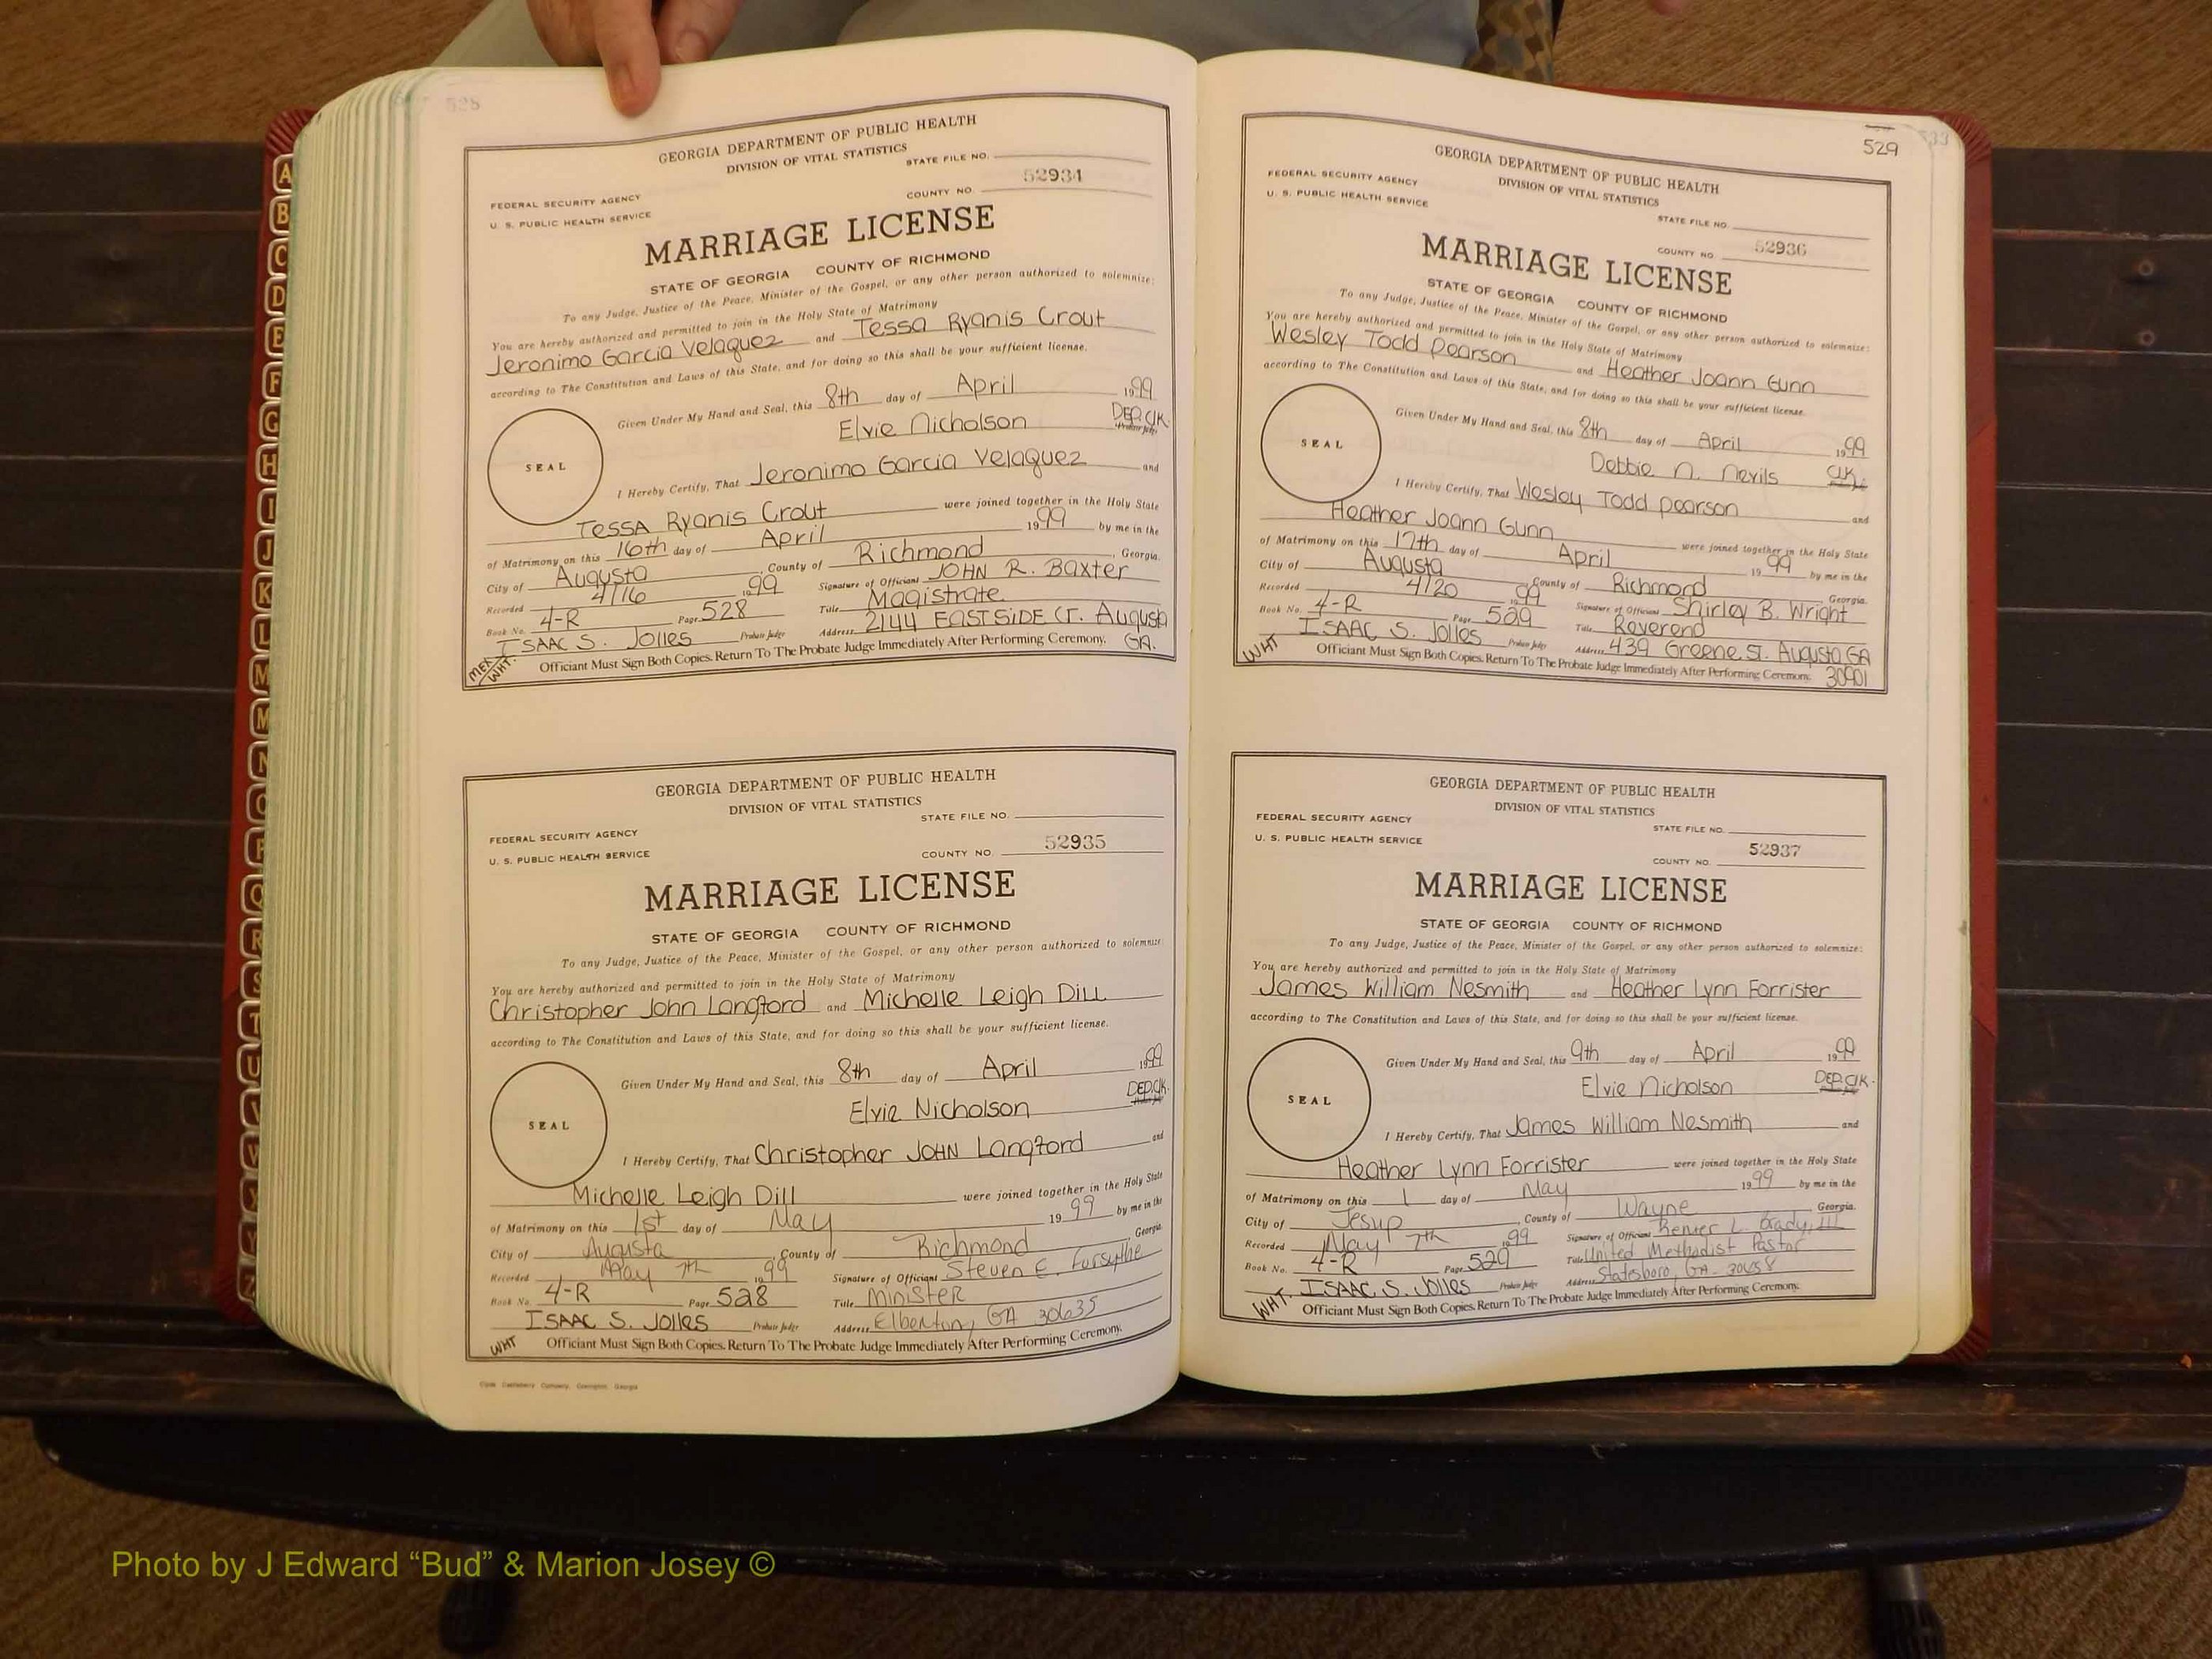 528
GEORGIA DEPARTMENT OF PUBLIC HEALTH
DIVISION OF VITAL STATISTICS
STATE FILE NO.
FEDERAL SECURITY AGENCY
COUNTY NO. 52934
U. S. PUBLIC HEALTH SERVICE
MARRIAGE LICENSE
STATE OF GEORGIA COUNTY OF RICHMOND
To any Judge, Justice of the Peace, Minister of the Gospel, or any other person authorized to solemnize:
You are hereby authorized and permitted to join in the Holy State of Matrimony
Jeronimo Garcia Velaquez and Tessa Ryanis Crout
according to The Constitution and Laws of this State, and for doing so this shall be your sufficient license.
Given Under My Hand and Seal, this 8th day of April 1999
Elvie Nicholson DEP. CIK.
Probate Judge
SEAL
I Hereby Certify, That Jeronimo Garcia Velaquez and
Tessa Ryanis Crout were joined together in the Holy State
of Matrimony on this 16th day of April 1999 by me in the
City of Augusta, County of Richmond, Georgia.
Recorded 4/16 1999 Signature of Officiant JOHN R. Baxter
Book No. 4-R Page 528 Title Magistrate
ISAAC S. Jolles Probate Judge Address 2144 EASTSIDE CT. Augusta GA.
MEX WHT. Officiant Must Sign Both Copies. Return To The Probate Judge Immediately After Performing Ceremony.
GEORGIA DEPARTMENT OF PUBLIC HEALTH
DIVISION OF VITAL STATISTICS
STATE FILE NO.
FEDERAL SECURITY AGENCY
COUNTY NO. 52935
U. S. PUBLIC HEALTH SERVICE
MARRIAGE LICENSE
STATE OF GEORGIA COUNTY OF RICHMOND
To any Judge, Justice of the Peace, Minister of the Gospel, or any other person authorized to solemnize:
You are hereby authorized and permitted to join in the Holy State of Matrimony
Christopher John Langford and Michelle Leigh Dill
according to The Constitution and Laws of this State, and for doing so this shall be your sufficient license.
Given Under My Hand and Seal, this 8th day of April 1999
Elvie Nicholson DEP. CIK.
SEAL
I Hereby Certify, That Christopher JOHN Langford and
Michelle Leigh Dill were joined together in the Holy State
of Matrimony on this 1st day of May 1999 by me in the
City of Augusta, County of Richmond, Georgia.
Recorded May 7th 1999 Signature of Officiant Steven E. Forsythe
Book No. 4-R Page 528 Title MINISTER
ISAAC S. Jolles Probate Judge Address Elberton, GA 30635
WHT Officiant Must Sign Both Copies. Return To The Probate Judge Immediately After Performing Ceremony.
529
GEORGIA DEPARTMENT OF PUBLIC HEALTH
DIVISION OF VITAL STATISTICS
FEDERAL SECURITY AGENCY
U. S. PUBLIC HEALTH SERVICE
STATE FILE NO.
COUNTY NO. 52936
MARRIAGE LICENSE
STATE OF GEORGIA COUNTY OF RICHMOND
To any Judge, Justice of the Peace, Minister of the Gospel, or any other person authorized to solemnize:
You are hereby authorized and permitted to join in the Holy State of Matrimony
Wesley Todd Pearson and Heather Joann Gunn
according to The Constitution and Laws of this State, and for doing so this shall be your sufficient license.
Given Under My Hand and Seal, this 8th day of April 1999
Debbie N. Nevils CIK.
SEAL
I Hereby Certify, That Wesley Todd Pearson and
Heather Joann Gunn were joined together in the Holy State
of Matrimony on this 17th day of April 1999 by me in the
City of Augusta County of Richmond Georgia.
Recorded 4/20 1999 Signature of Officiant Shirley B. Wright
Book No. 4-R Page 529 Title Reverend
ISAAC S. Jolles Probate Judge Address 439 Greene St. Augusta GA 30901
WHT Officiant Must Sign Both Copies. Return To The Probate Judge Immediately After Performing Ceremony.
GEORGIA DEPARTMENT OF PUBLIC HEALTH
DIVISION OF VITAL STATISTICS
FEDERAL SECURITY AGENCY
STATE FILE NO.
U. S. PUBLIC HEALTH SERVICE
COUNTY NO. 52937
MARRIAGE LICENSE
STATE OF GEORGIA COUNTY OF RICHMOND
To any Judge, Justice of the Peace, Minister of the Gospel, or any other person authorized to solemnize:
You are hereby authorized and permitted to join in the Holy State of Matrimony
James William Nesmith and Heather Lynn Forrister
according to The Constitution and Laws of this State, and for doing so this shall be your sufficient license.
Given Under My Hand and Seal, this 9th day of April 1999
Elvie Nicholson DEP. CIK.
SEAL
I Hereby Certify, That James William Nesmith and
Heather Lynn Forrister were joined together in the Holy State
of Matrimony on this 1 day of May 1999 by me in the
City of Jesup, County of Wayne Georgia.
Recorded May 7th 1999 Signature of Officiant L. Brady, III
Book No. 4-R Page 529 Title United Methodist Pastor
ISAAC S. Jolles Probate Judge Address Statesboro, GA. 30458
WHT. Officiant Must Sign Both Copies. Return To The Probate Judge Immediately After Performing Ceremony.
A
B
C
D
E
F
G
H
I
J
K
L
M
M
N
O
P
Q
R
S
T
U
V
W
X
Y
Z
Photo by J Edward “Bud” & Marion Josey ©